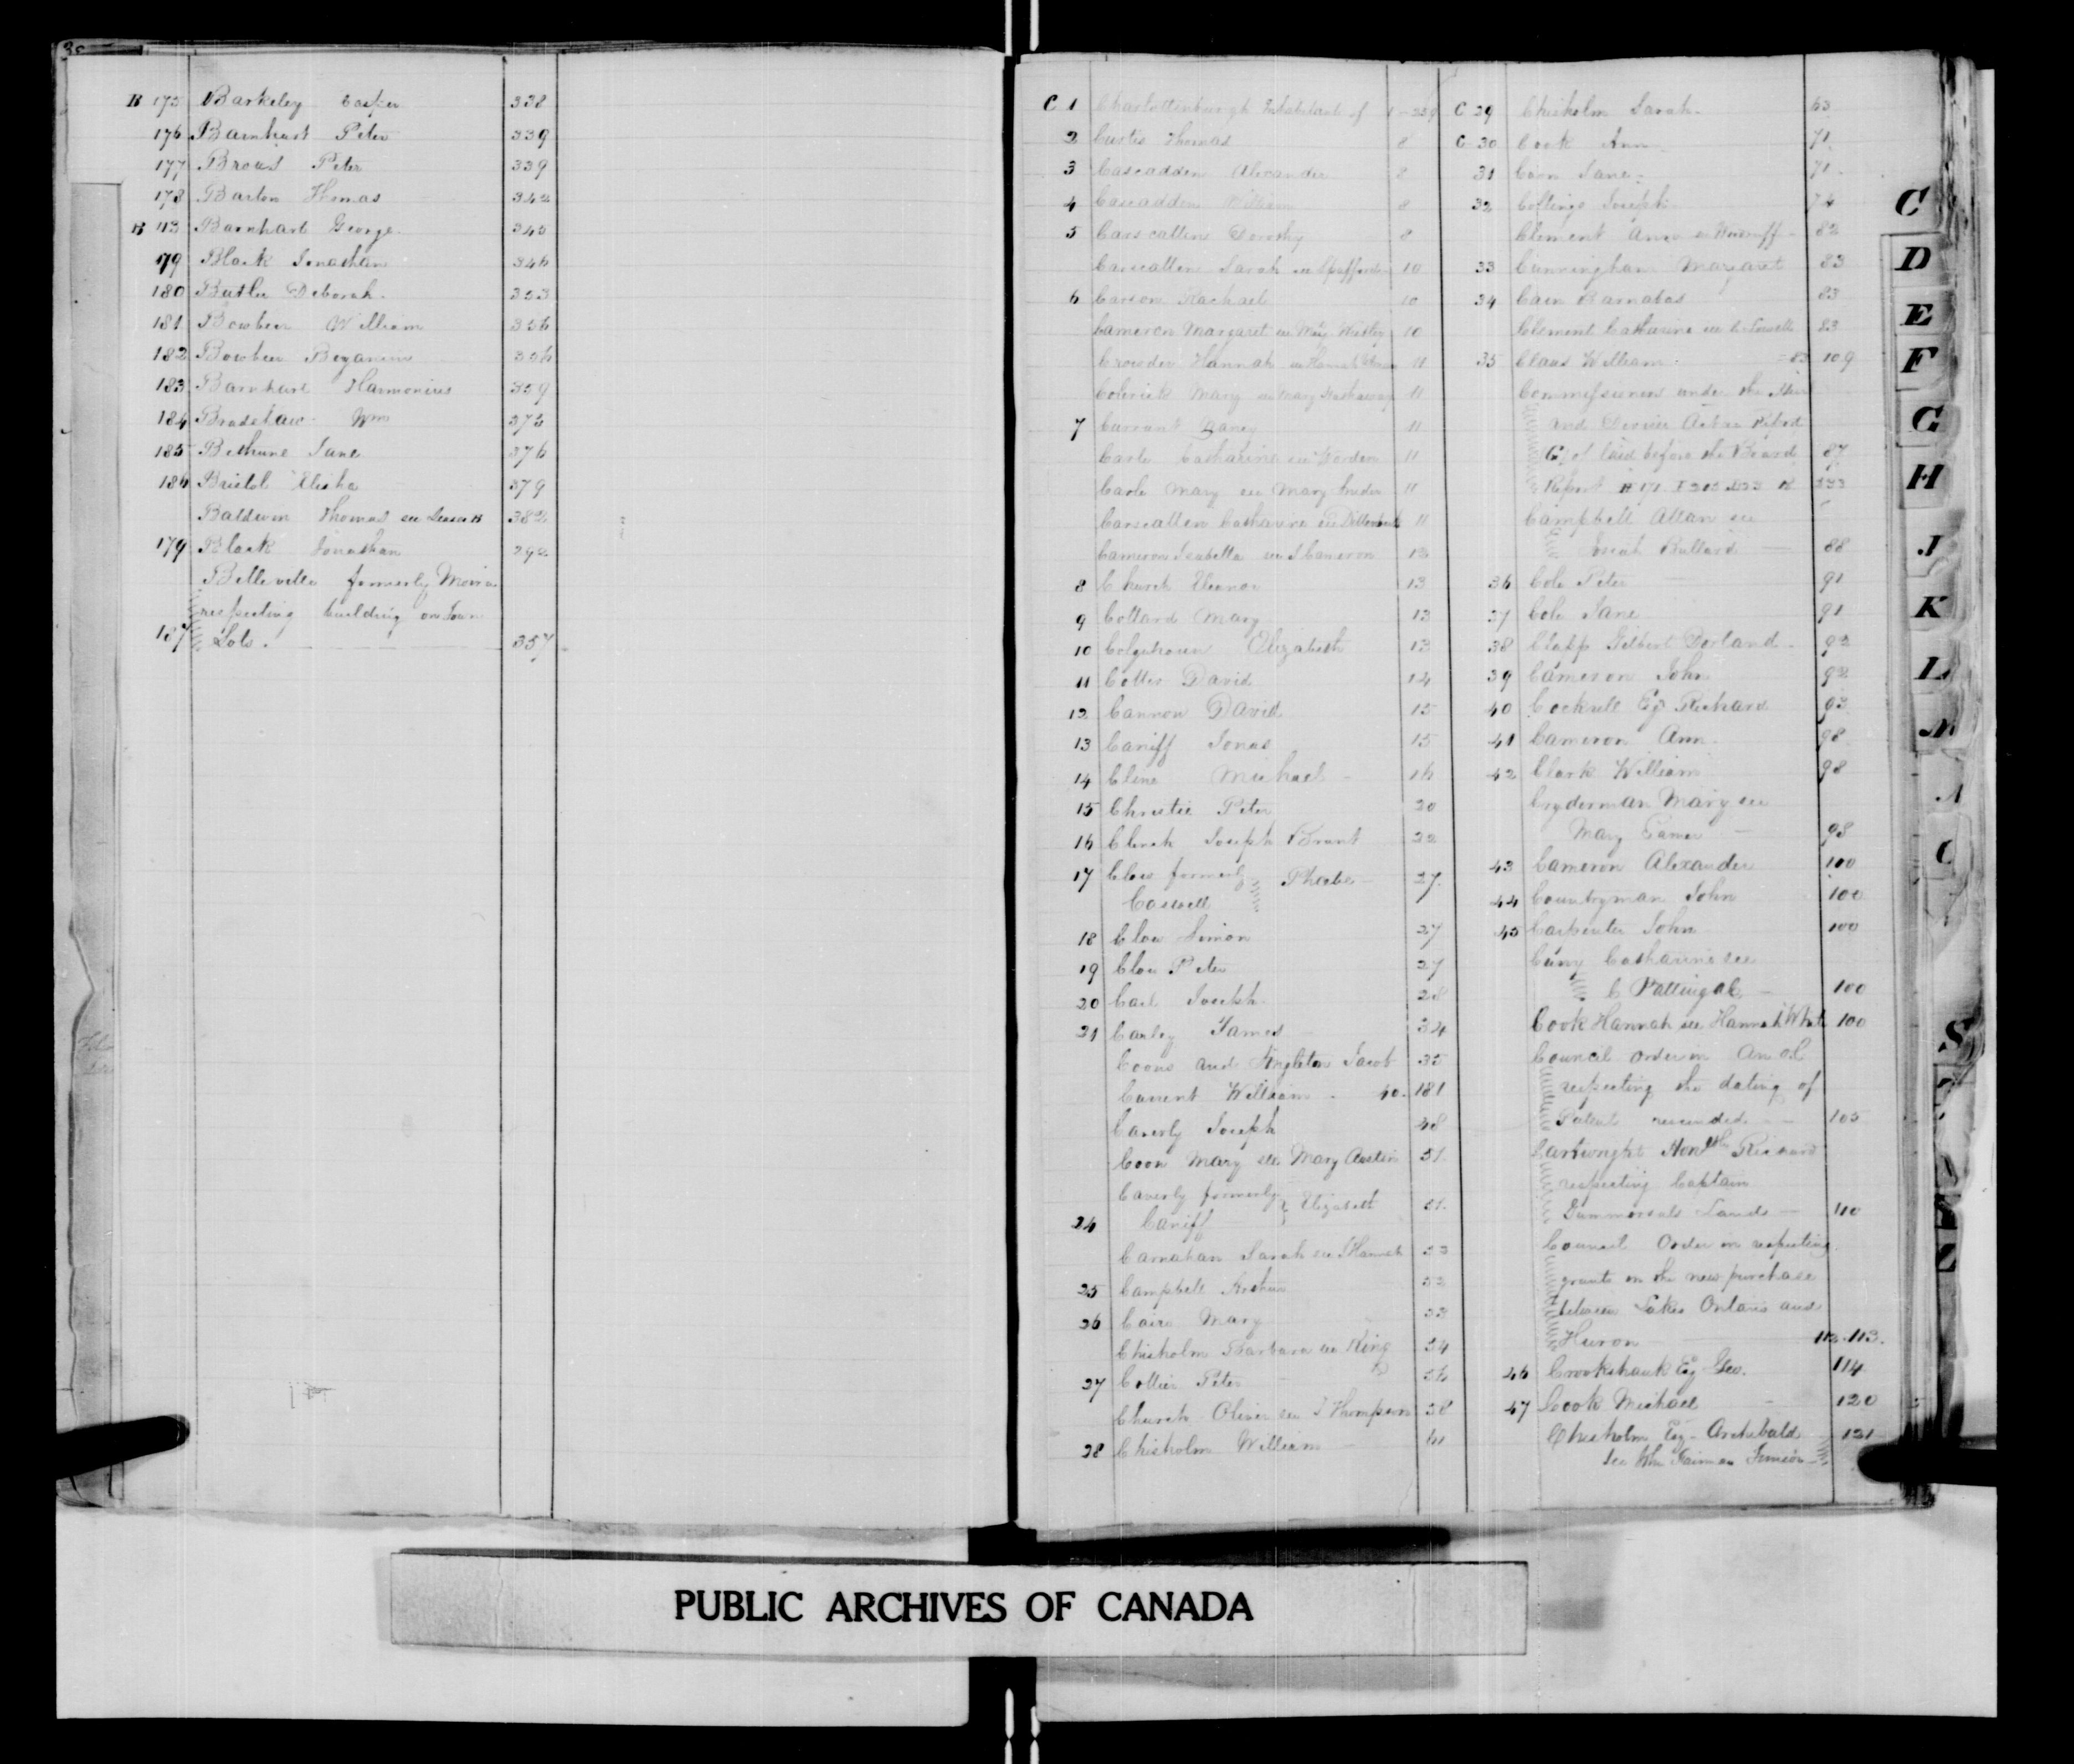 B 175 Barkeley Casper 338
176 Barnhart Peter 339
177 Brous Peter 339
178 Barton Thomas 342
B 113 Barnhart George 345
179 Black Jonathan 346
180 Butler Deborah 353
181 Bowbeer William 356
182 Bowbeer Benjamin 356
183 Barnhart Harmonius 359
184 Bradshaw Wm 373
185 Bethune Jane 376
186 Bristol Elisha 379
Baldwin Thomas see Leases 382
179 Black Jonathan 292
Belleville formerly Moira
respecting building on Town
187 Lots. 357
C 1 Charlottenburgh Inhabitants of 1-259
2 Curtis Thomas 8
3 Cascadden Alexander 8
4 Cascadden William 8
5 Carscallen Dorothy 8
Carscallen Sarah see Spafford 10
6 Carson Rachael 10
Cameron Margaret see Mary 10
Crowder Hannah see Hannah 11
Colerick Mary see Mary Hathaway 11
7 Currant Nancy 11
Carle Catharine see Gordon 11
Carle Mary see Mary Snider 11
Carscallen Catharine see 11
Cameron Isabella see I Cameron 13
8 Church Eleanor 13
9 Collard Mary 13
10 Colquhoun Elizabeth 13
11 Cotter David 14
12 Cannon David 15
13 Caniff Jonas 15
14 Cline Michael 16
15 Christie Peter 20
16 Clench Joseph Brant 22
17 Clow formerly Phoebe 27
Caswell
18 Clow Simon 27
19 Clow Peter 27
20 Carl Joseph 28
21 Carley James 34
Coons and Singleton Jacob 35
Current William 40. 181
Caverly Joseph 48
Coon Mary see Mary Austin 51
Caverly formerly Elizabeth 51
24 Caniff
Carnahan Sarah see S Hannah 53
25 Campbell Archer 52
26 Cairn Mary 53
Chisholm Barbara see King 54
27 Collier Peter 56
Church Oliver see T Thompson 58
28 Chisholm William 61
C 29 Chisholm Sarah 63
C 30 Cook Ann 71
31 Coon Jane 71
32 Collings Joseph 74
Clement Ann see Woodruff 82
33 Cunningham Margaret 83
34 Cain Barnabas 83
Clement Catharine see 83
35 Claus William 83 109
Commissioners under the Heir
and Devisee Act a Report
of laid before the Board 87
Report
Campbell Allan see
Josiah Bullard 88
36 Cole Peter 91
37 Cole Jane 91
38 Clapp Gilbert Dorland 92
39 Cameron John 92
40 Cockrell Esq Richard 93
41 Cameron Ann 98
42 Clark William 98
Cryderman Mary see
Mary Eamer 98
43 Cameron Alexander 100
44 Countryman John 100
45 Carpenter John 100
Curry Catharine see
C Pattingal 100
Cook Hannah see Hannah White 100
Council order in An old
respecting the dating of
Patents rescinded 105
Cartwright Honble Richard
respecting Captain
Lands 110
Council Order in respecting
grants on the new purchase
between Lakes Ontario and
Huron 112-113.
46 Crookshank Esq Geo. 114
47 Cook Michael 120
Chisholm Esq Archibald 121
see Wm Fairman Junior
C
D
E
F
G
H
J
K
L
M
S
PUBLIC ARCHIVES OF CANADA